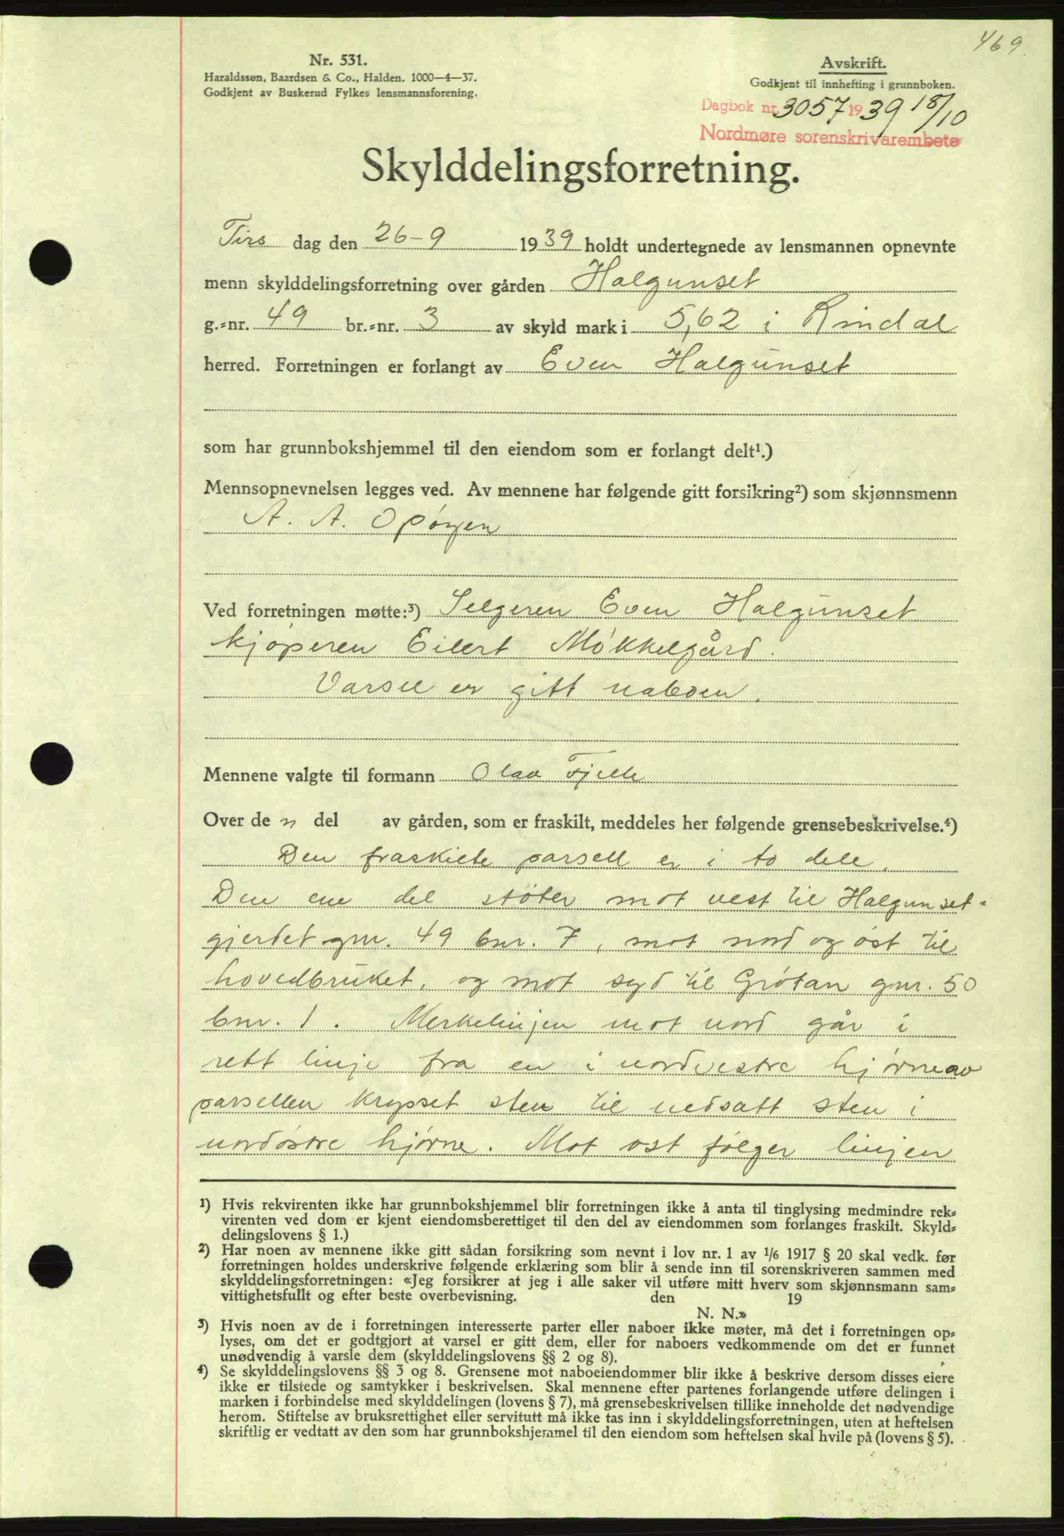 469.
Nr. 531.
Haraldssen, Baardsen & Co., Halden. 1000—4—37.
Godkjent av Buskerud Fylkes lensmannsforening.
Avskrift.
Godkjent til innhefting i grunnboken.
Dagbok nr. 3057 1939 18/10
Nordmøre sorenskrivarembete
Skylddelingsforretning.
Tirs dag den 26-9 1939 holdt undertegnede av lensmannen opnevnte
menn skylddelingsforretning over gården Halgunset
g.=nr. 49 br.=nr. 3 av skyld mark i 5,62 i Rindal
herred. Forretningen er forlangt av Even Halgunset
som har grunnbokshjemmel til den eiendom som er forlangt delt¹.)
Mennsopnevnelsen legges ved. Av mennene har følgende gitt forsikring²) som skjønnsmenn
A. A. Opøyen
Ved forretningen møtte:³) Selgeren Even Halgunset
kjøperen Eilert Møkkelgård.
Varsel er gitt naboen.
Mennene valgte til formann Olav Fjelle
Over de n del av gården, som er fraskilt, meddeles her følgende grensebeskrivelse.⁴)
Den fraskilte parsell er i to dele.
Den ene del støter mot vest til Halgunset-
gjerdet gnr. 49 bnr. 7, mot nord og øst til
hovedbruket, og mot syd til Grøtan gnr. 50
bnr. 1. Merkelinjen mot nord går i
rett linje fra en i nordvestre hjørne av
parsellen krysset sten til nedsatt sten i
nordøstre hjørne. Mot øst følger linjen
¹) Hvis rekvirenten ikke har grunnbokshjemmel blir forretningen ikke å anta til tinglysing medmindre rek=
virenten ved dom er kjent eiendomsberettiget til den del av eiendommen som forlanges fraskilt. Skyld=
delingslovens § 1.)
²) Har noen av mennene ikke gitt sådan forsikring som nevnt i lov nr. 1 av 1/6 1917 § 20 skal vedk. før
forretningen holdes underskrive følgende erklæring som blir å sende inn til sorenskriveren sammen med
skylddelingsforretningen: «Jeg forsikrer at jeg i alle saker vil utføre mitt hverv som skjønnsmann sam=
vittighetsfullt og efter beste overbevisning. den 19
N. N.»
³) Hvis noen av de i forretningen interesserte parter eller naboer ikke møter, må det i forretningen op=
lyses, om det er godtgjort at varsel er gitt dem, eller for naboers vedkommende om det er funnet
unødvendig å varsle dem (skylddelingslovens §§ 2 og 8).
⁴) Se skylddelingslovens §§ 3 og 8. Grensene mot naboeiendommer blir ikke å beskrive dersom disses eiere
ikke er tilstede og samtykker i beskrivelsen. Skal mennene efter partenes forlangende utføre delingen i
marken i forbindelse med skylddelingen (lovens § 7), må grensebeskrivelsen tillike inneholde det nødvendige
herom. Stiftelse av bruksrettighet eller servitutt må ikke tas inn i skylddelingsforretningen, uten at heftelsen
skriftlig er vedtatt av den som har grunnbokshjemmel til den eiendom som heftelsen skal hvile på (lovens § 5).